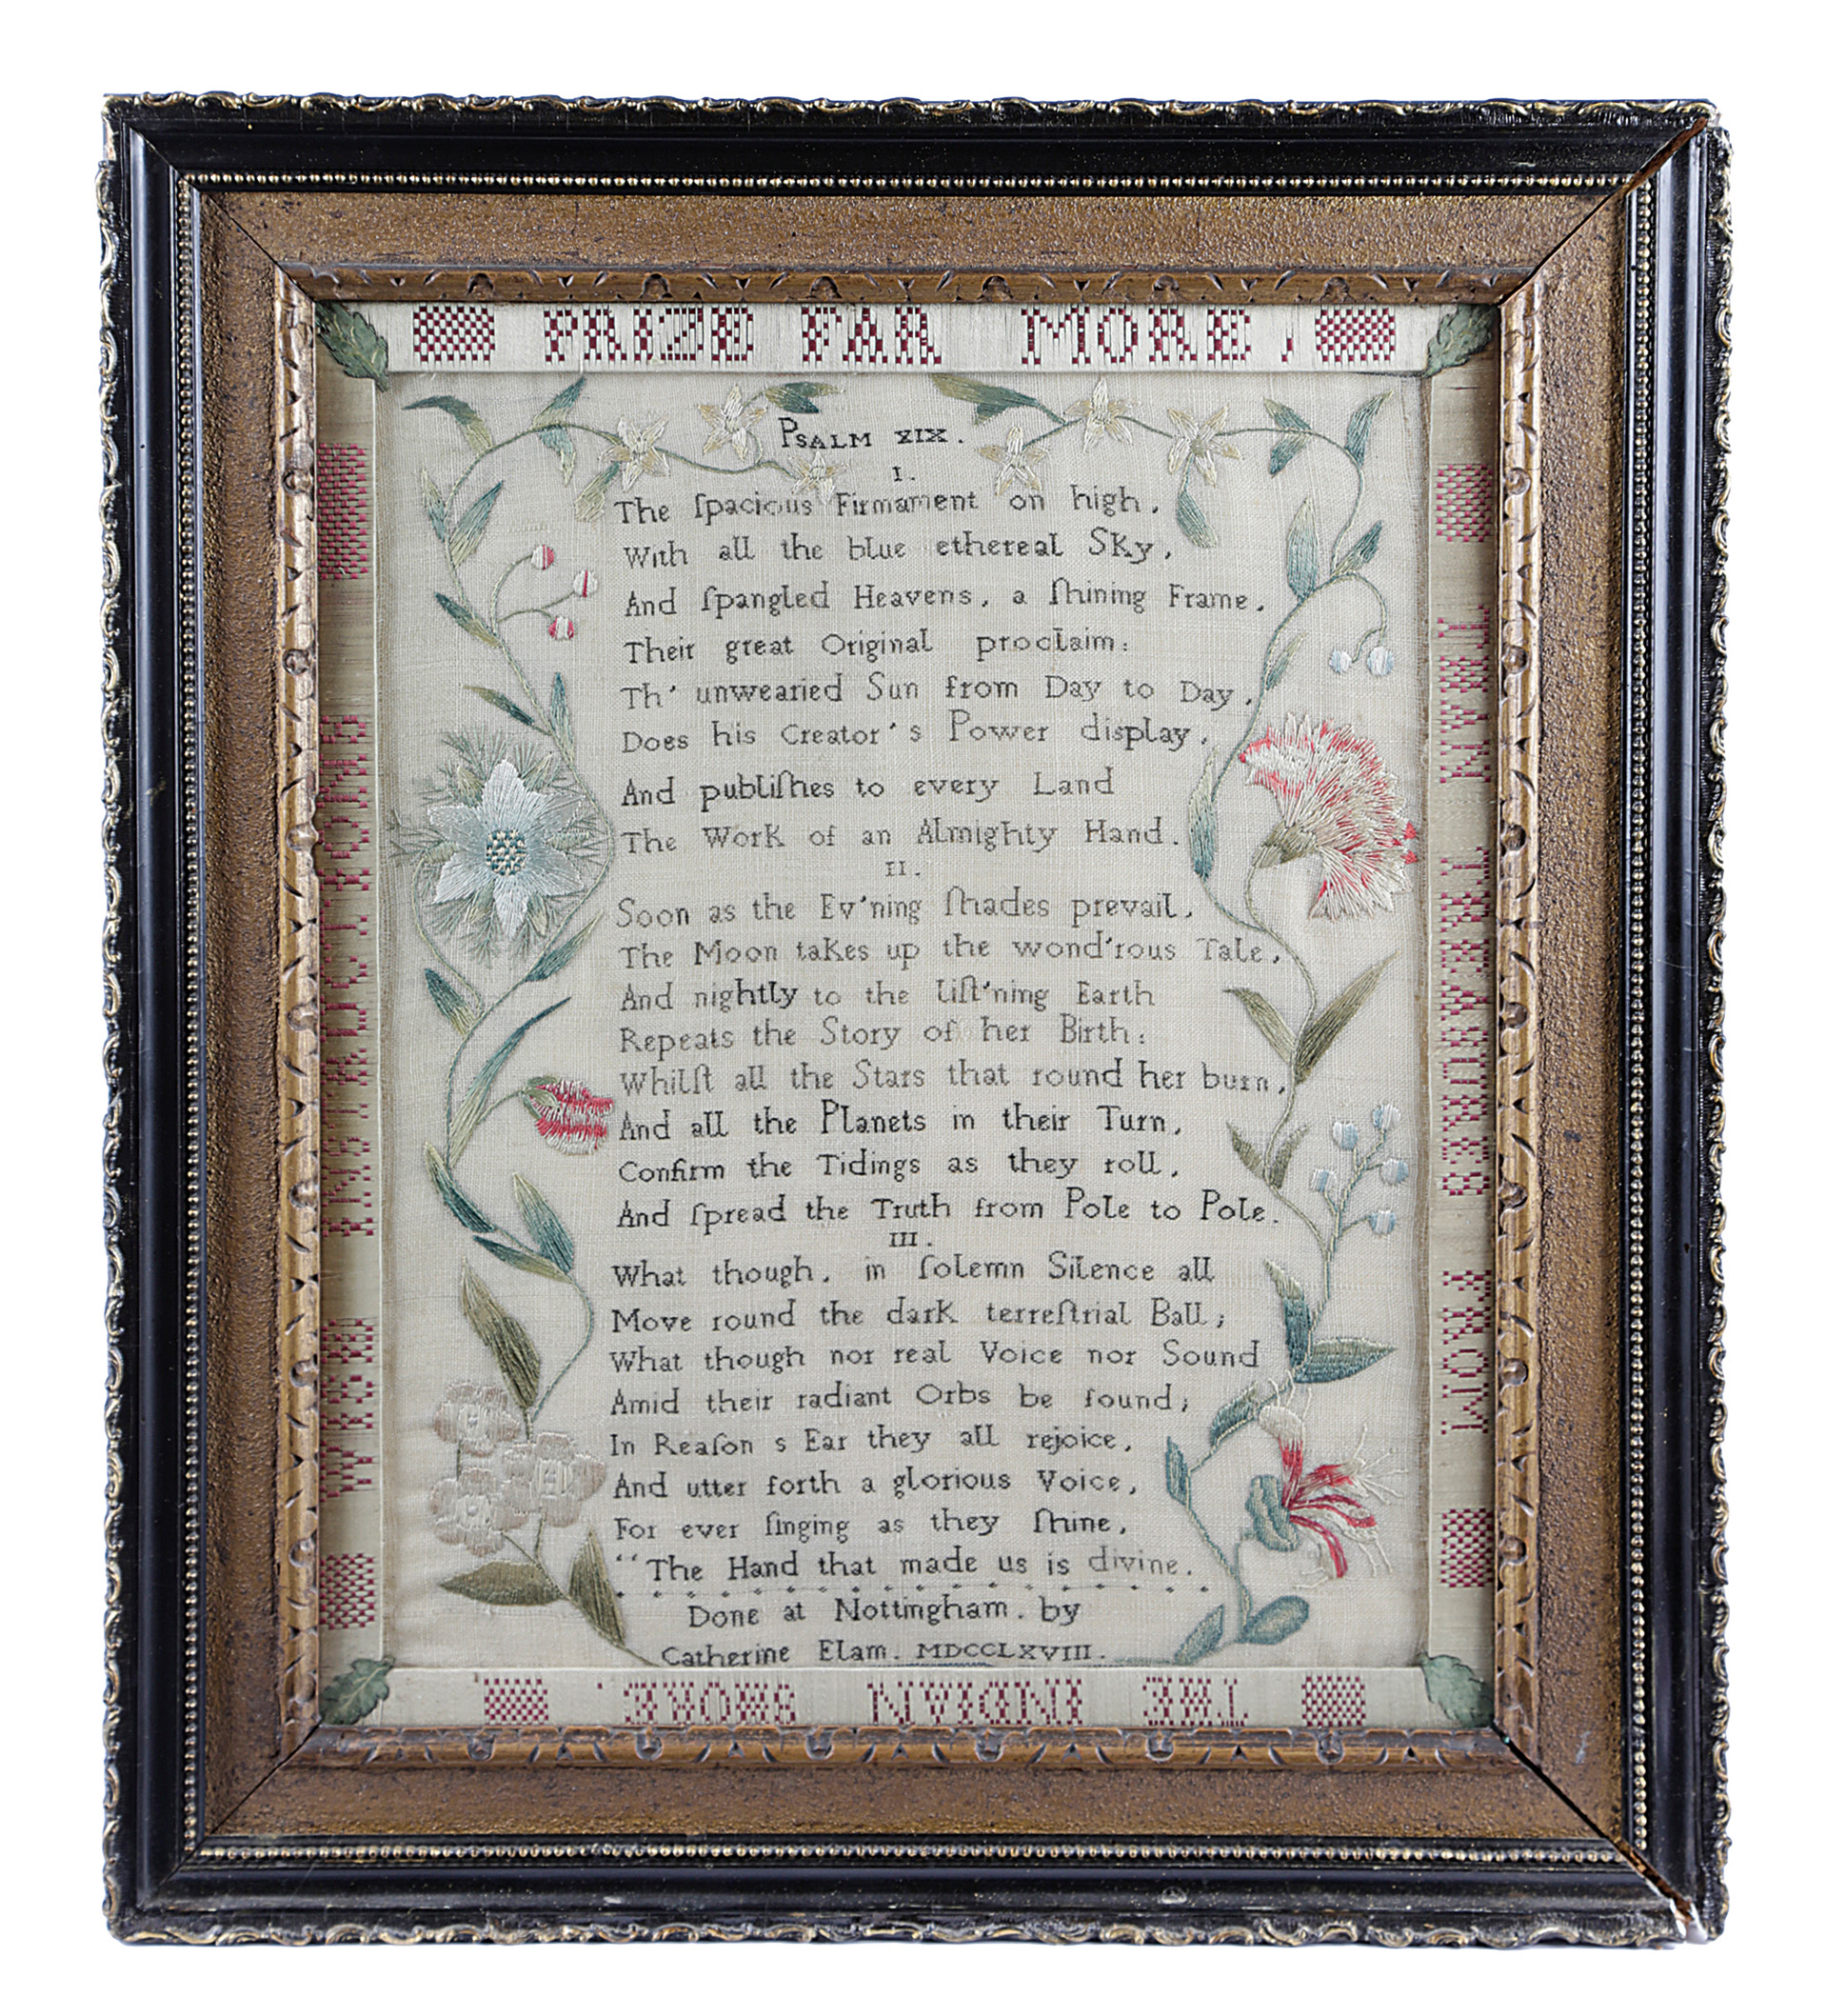 PRIZE FAR MORE,
PSALM XIX.
I.
The ſpacious Firmament on high,
With all the blue ethereal Sky,
And ſpangled Heavens, a ſhining Frame,
Their great Original proclaim:
Th' unwearied Sun from Day to Day,
Does his Creator's Power display,
And publiſhes to every Land
The Work of an Almighty Hand.
II.
Soon as the Ev'ning ſhades prevail,
The Moon takes up the wond'rous Tale,
And nightly to the liſt'ning Earth
Repeats the Story of her Birth:
Whilſt all the Stars that round her burn,
And all the Planets in their Turn,
Confirm the Tidings as they roll,
And ſpread the Truth from Pole to Pole.
III.
What though, in ſolemn Silence all
Move round the dark terreſtrial Ball;
What though nor real Voice nor Sound
Amid their radiant Orbs be found;
In Reaſon s Ear they all rejoice,
And utter forth a glorious Voice,
For ever ſinging as they ſhine,
“The Hand that made us is divine.
Done at Nottingham. by
Catherine Elam. MDCCLXVIII.
THAN TREASURES FROM
THE INDIAN SHORE.
INSTRUCTIONS